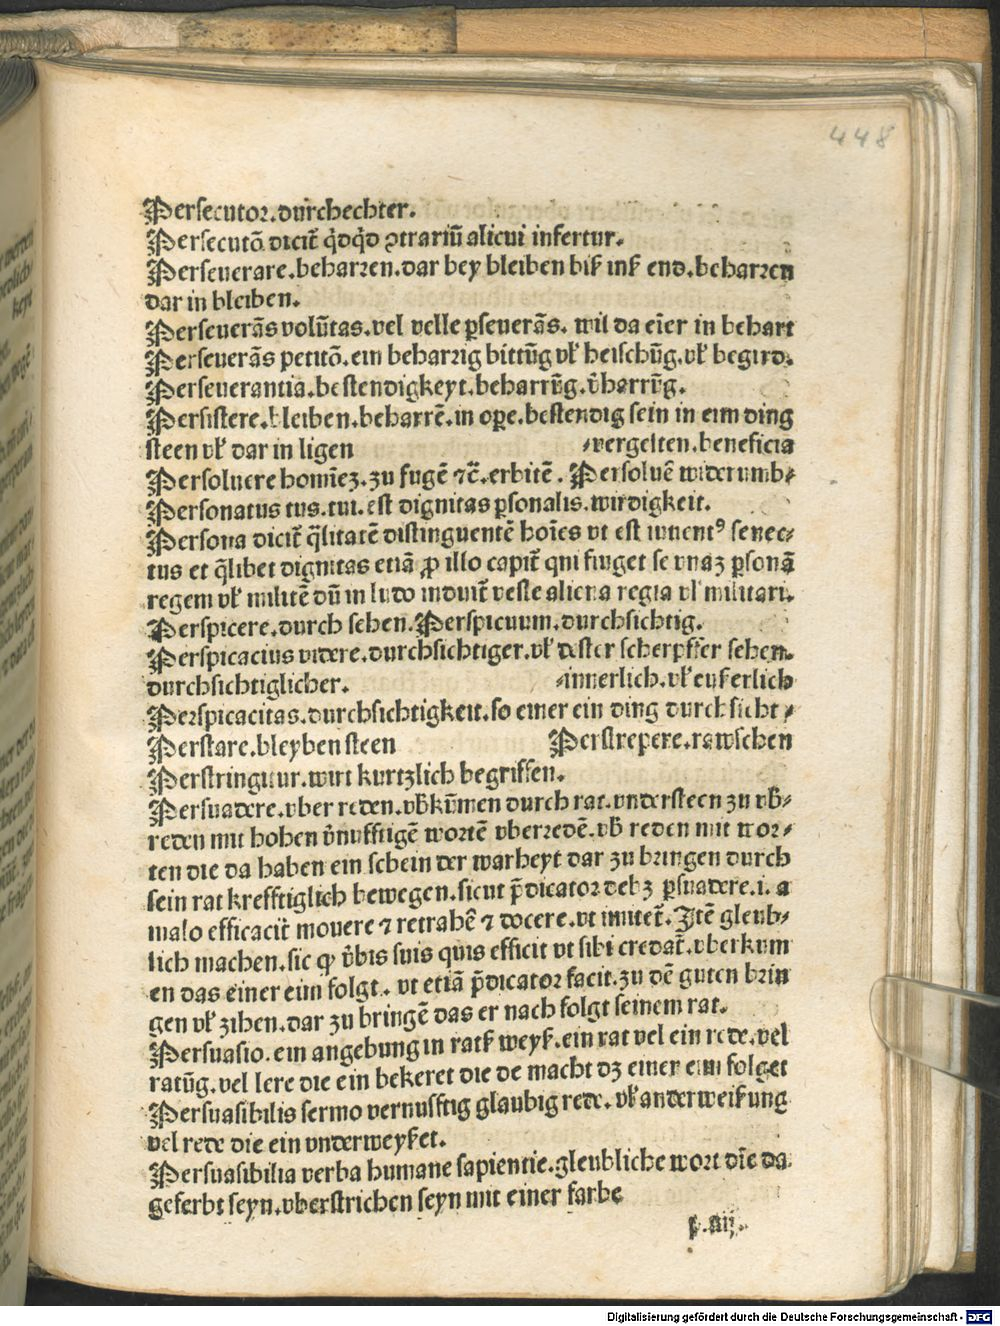 448
Persecutor.durchechter.
Persecutō dicit̄ q̄dq̄d ꝯtrariū alicui infertur.
Perseuerare.beharren.dar bey bleiben biß inß end.beharren
dar in bleiben.
Perseuerās volūtas.vel velle ꝑseuerās. wil da eīer in behart
Perseuerās petitō.ein beharrig bittūg vl̄ heischūg.vl̄ begird.
Perseuerantia.bestendigkeyt.beharrūg.v̄harrūg.
Persistere.bleiben.beharrē.in oꝑe.bestendig sein in eim ding
steen vl̄ dar in ligen ⸗vergelten.beneficia
Persoluere homīez.zu fugē ⁊c̄.erbitē. Persoluē widerumb⸗
Personatus tus.tui.est dignitas ꝑsonalis.wirdigkeit.
Persona dicit̄ q̄litatē distinguentē hoīes vt est iuuentꝰ senec⸗
tus et q̄libet dignitas etiā ꝓ illo capit̄ qui finget se vnaz ꝑsonā
regem vl̄ militē dū in ludo induit̄ veste aliena regia vl̄ militari.
Perspicere.durch sehen.Perspicuum.durchsichtig.
Perspicacius videre.durchsichtiger.vl̄ dester scherpffer sehen.
durchsichtiglicher. ⸗innerlich.vl̄ eußerlich
Perspicacitas.durchsichtigkeit.so einer ein ding durchsicht⸗
Perstare.bleyben steen Perstrepere.rawschen
Perstringitur.wirt kurtzlich begriffen.
Persuadere.vber reden.vb̄kūmen durch rat.vndersteen zu vb̄⸗
reden mit hohen v̄nufftigē wortē vberredē.vb̄ reden mit wor⸗
ten die da haben ein schein der warheyt dar zu bringen durch
sein rat krefftiglich bewegen.sicut p̄dicator debꝫ ꝑsuadere.i.a
malo efficacit̄ mouere ⁊ retrahē ⁊ docere.vt imitet̄.Itē gleub⸗
lich machen.sic ꝙ v̄bis suis quis efficit vt sibi credat̄.vberkum
en das einer eim folgt. vt etiā p̄dicator facit.zu dē guten brin
gen vl̄ zihen.dar zu bringē das er nach folgt seinem rat.
Persuasio.ein angebung in ratß weyß.ein rat vel ein rede.vel
ratūg.vel lere die ein bekeret die de macht dꝫ einer eim folget
Persuasibilis sermo vernufftig glaubig rede.vl̄ anderweißung
vel rede die ein vnderweyßet.
Persuasibilia verba humane sapientie.gleubliche wort dīe da
geferbt seyn.vberstrichen seyn mit einer farbe
Digitalisierung gefördert durch die Deutsche Forschungsgemeinschaft - DFG